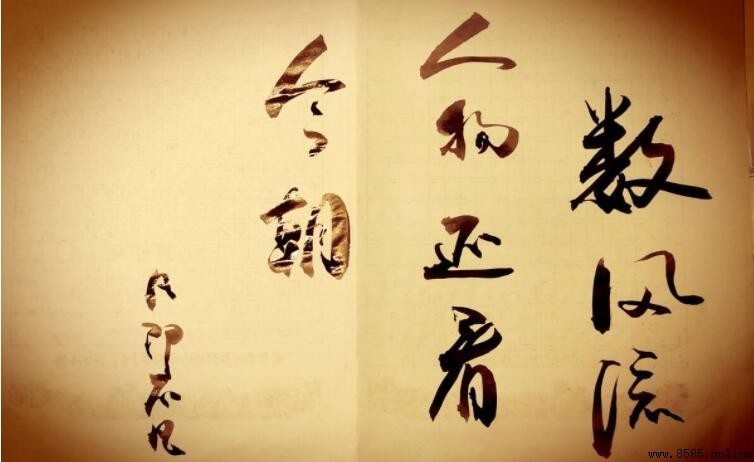 数风流
人物还看
今朝
www.8585.online